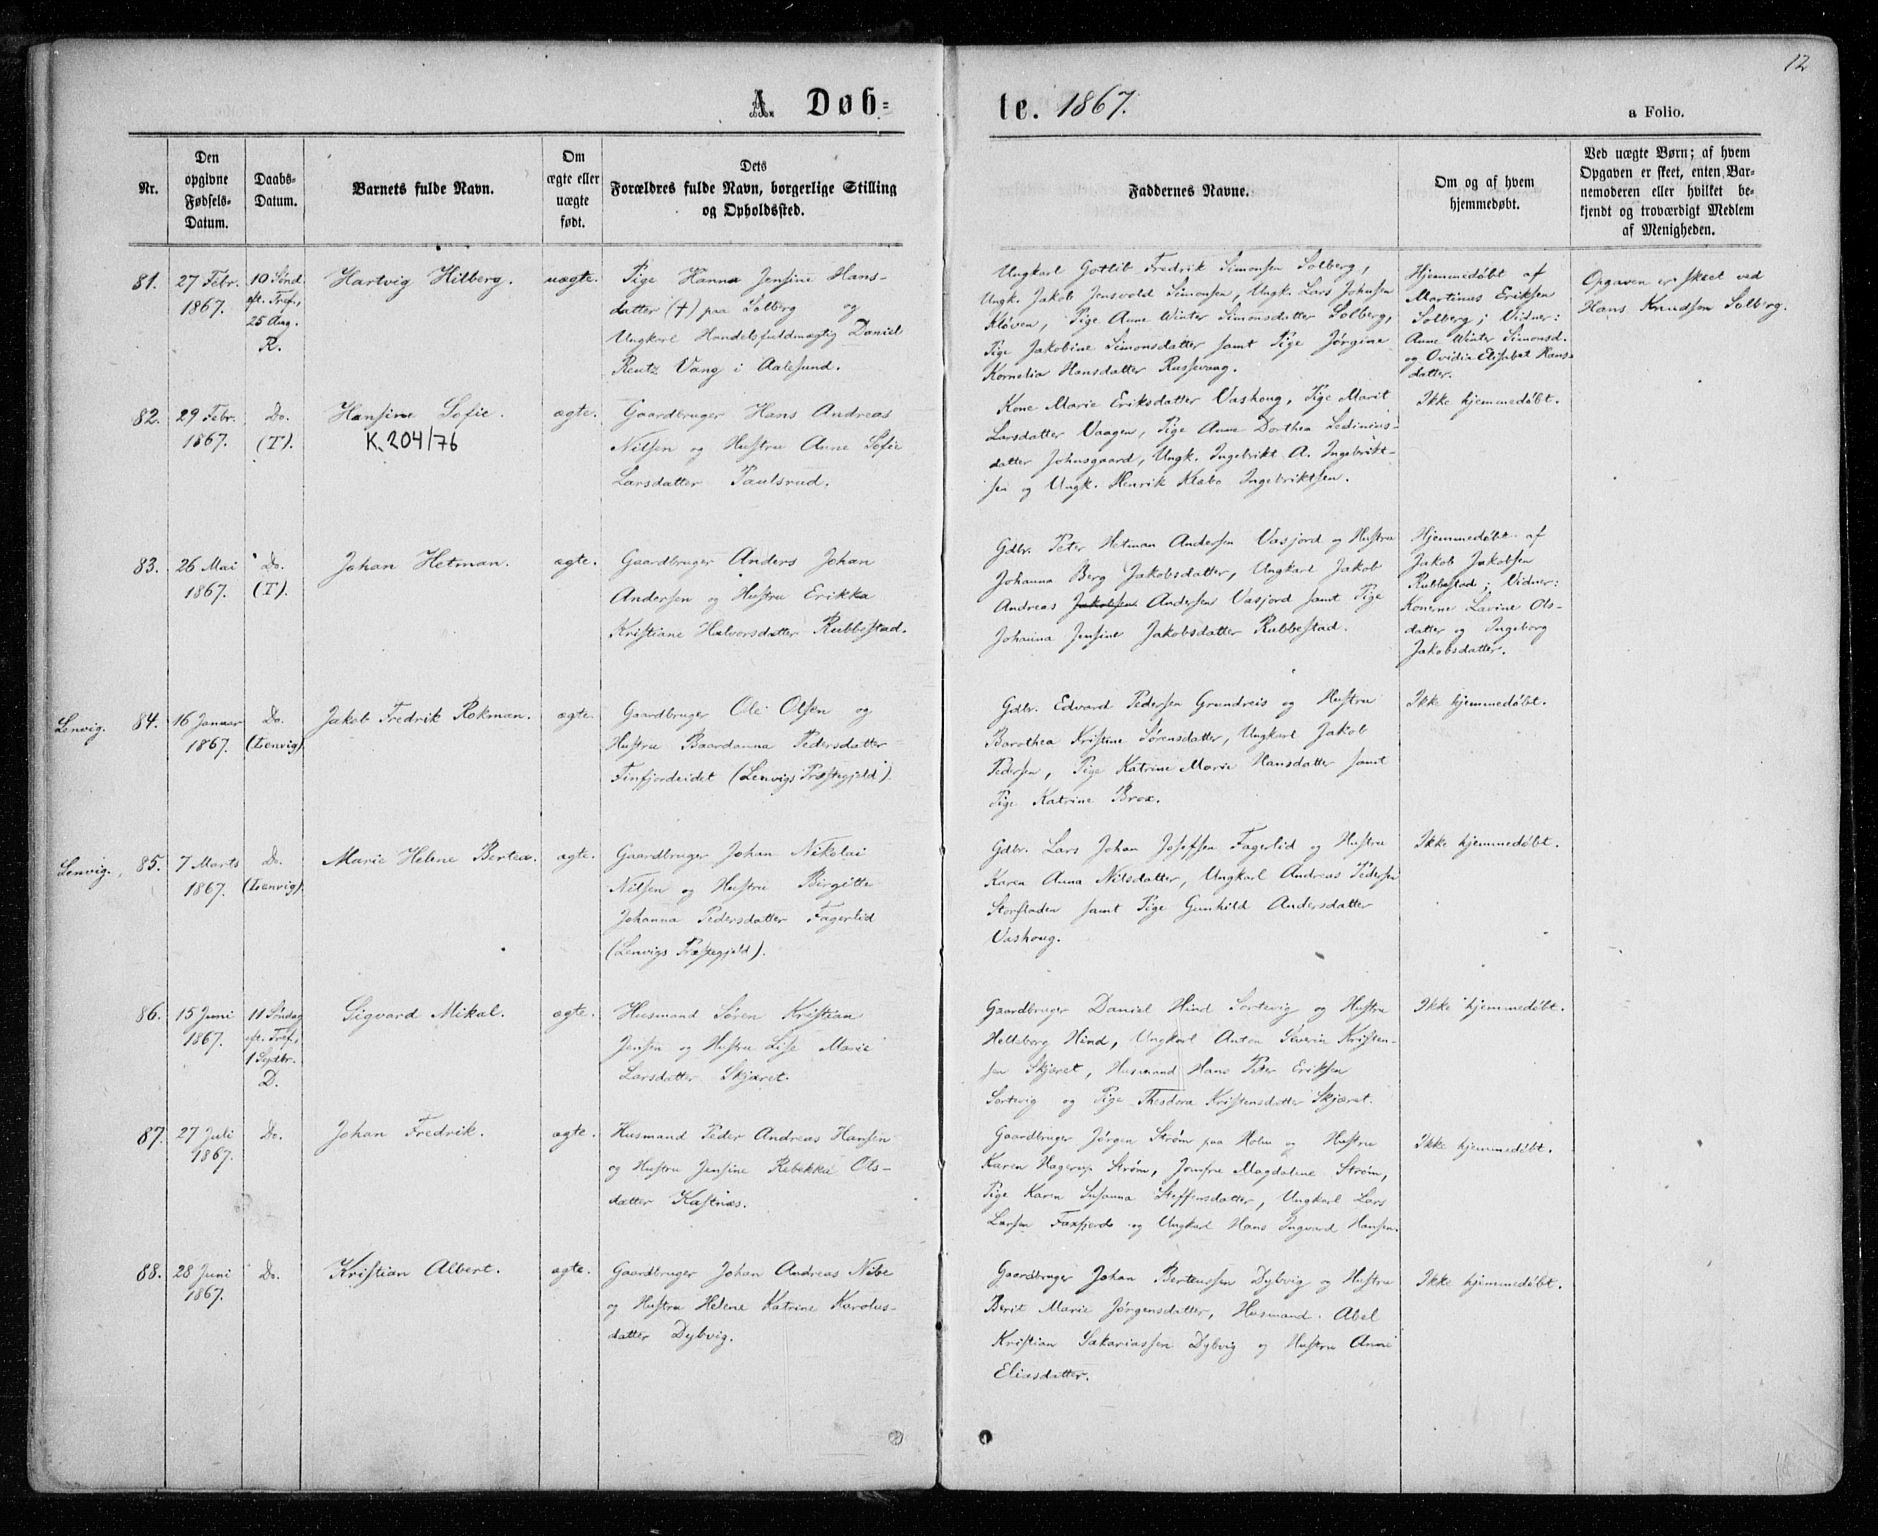 12
A. Døb=
te. 1867.
a Folio.
Nr.
Den
opgivne
Fødsels-
Datum.
Daabs-
Datum.
Barnets fulde Navn.
Om
ægte eller
uægte
født.
Dets
Forældres fulde Navn, borgerlige Stilling
og Opholdssted.
Faddernes Navne.
Om og af hvem
hjemmedøbt.
Ved uægte Børn; af hvem
Opgaven er skeet, enten Bar-
nemoderen eller hvilket be-
kjendt og troværdigt Medlem
af Menigheden.
81.
27 Febr.
1867.
10 Sønd.
eft. Tref.,
25 Aug.
R.
Hartvig Hilberg.
uægte.
Pige Hanna Jensine Hans-
datter (†) paa Solberg og
Ungkarl Handelsfuldmægtig Daniel
Reutz Vang i Aalesund.
Ungkarl Gotlib Fredrik Simonsen Solberg,
Ungk. Jakob Jensvold Simonsen, Ungk. Lars Johnsen
Kløven, Pige Anne Winter Simonsdatter Solberg,
Pige Jakobine Simonsdatter samt Pige Jørgine
Kornelia Hansdatter Russevaag.
Hjemmedøbt af
Martinus Eriksen
Solberg; Vidner:
Anne Winter Simonsd.
og Ovidia Elisabet Hans-
datter.
Opgaven er skeet ved
Hans Knudsen Solberg.
82.
29 Febr.
1867.
Do.
(T).
Hansine Sofie.
K. 204/76
ægte.
Gaardbruger Hans Andreas
Nilsen og Hustru Anne Sofie
Larsdatter Paulsrud.
Kone Marie Eriksdatter Vashoug, Pige Marit
Larsdatter Vaagen, Pige Anne Dorthea Sedinius-
datter Johnsgaard, Ungk. Ingebrikt A. Ingebrikt-
sen og Ungk. Henrik Klabo Ingebriktsen.
Ikke hjemmedøbt.
83.
26 Mai
1867.
Do.
(T).
Johan Hetman.
ægte.
Gaardbruger Anders Johan
Andersen og Hustru Erikka
Kristiane Halvorsdatter Rubbestad.
Gdbr. Peter Hetman Andersen Vasjord og Hustru
Johanna Berg Jakobsdatter, Ungkarl Jakob
Andreas Jakobsen Andersen Vasjord samt Pige
Johanna Jensine Jakobsdatter Rubbestad.
Hjemmedøbt af
Jakob Jakobsen
Rubbestad; Vidner:
Konerne Lavine Ols-
datter og Ingeborg
Jakobsdatter.
Lenvig.
84.
16 Januar
1867.
Do.
(Lenvig).
Jakob Fredrik Rokman.
ægte.
Gaardbruger Ole Olsen og
Hustru Baardanna Pedersdatter
Finfjordeidet (Lenvigs Præstegjeld).
Gdbr. Edvard Pedersen Grundreis og Hustru
Barothea Kristine Sørensdatter, Ungkarl Jakob
Pedersen, Pige Katrine Marie Hansdatter samt
Pige Katrine Brox.
Ikke hjemmedøbt.
Lenvig.
85.
7 Marts
1867.
Do.
(Lenvig).
Marie Helene Bertea.
ægte.
Gaardbruger Johan Nikolai
Nilsen og Hustru Birgitte
Johanna Pedersdatter Fagerlid
(Lenvigs Præstegjeld).
Gdbr. Lars Johan Josefsen Fagerlid og Hustru
Karen Anna Nilsdatter, Ungkarl Andreas Pedersen
Storsladen samt Pige Gunhild Andersdatter
Vashoug.
Ikke hjemmedøbt.
86.
15 Juni
1867.
11 Søndag
eft. Tref.,
1 Septbr.
D.
Sigvard Mikal.
ægte.
Husmand Søren Kristian
Jensen og Hustru Lise Marie
Larsdatter Skjæret.
Gaardbruger Daniel Hind Sortevig og Hustru
Helleborg Hind, Ungkarl Anton Severin Kristen-
sen Skjæret, Husmand Hans Peter Eriksen
Sortevig og Pige Theodora Kristensdatter Skjæret.
Ikke hjemmedøbt.
87.
27 Juli
1867.
Do.
Johan Fredrik.
ægte.
Husmand Peder Andreas Hansen
og Hustru Jensine Rebekka Ols-
datter Kastnæs.
Gaardbruger Jørgen Strøm paa Holm og Hustru
Karen Hagerup Strøm, Jomfru Magdalene Strøm,
Pige Karen Susanna Steffensdatter, Ungkarl Lars
Larsen Faxfjord og Ungkarl Hans Ingvard Hansen.
Ikke hjemmedøbt.
88.
28 Juni
1867.
Do.
Kristian Albert.
ægte.
Gaardbruger Johan Andreas Nibe
og Hustru Helene Katrine Karolus-
datter Dybvig.
Gaardbruger Johan Berteussen Dybvig og Hustru
Berit Marie Jørgensdatter, Husmand Abel
Kristian Sakariassen Dybvig og Hustru Anne
Eliasdatter.
Ikke hjemmedøbt.